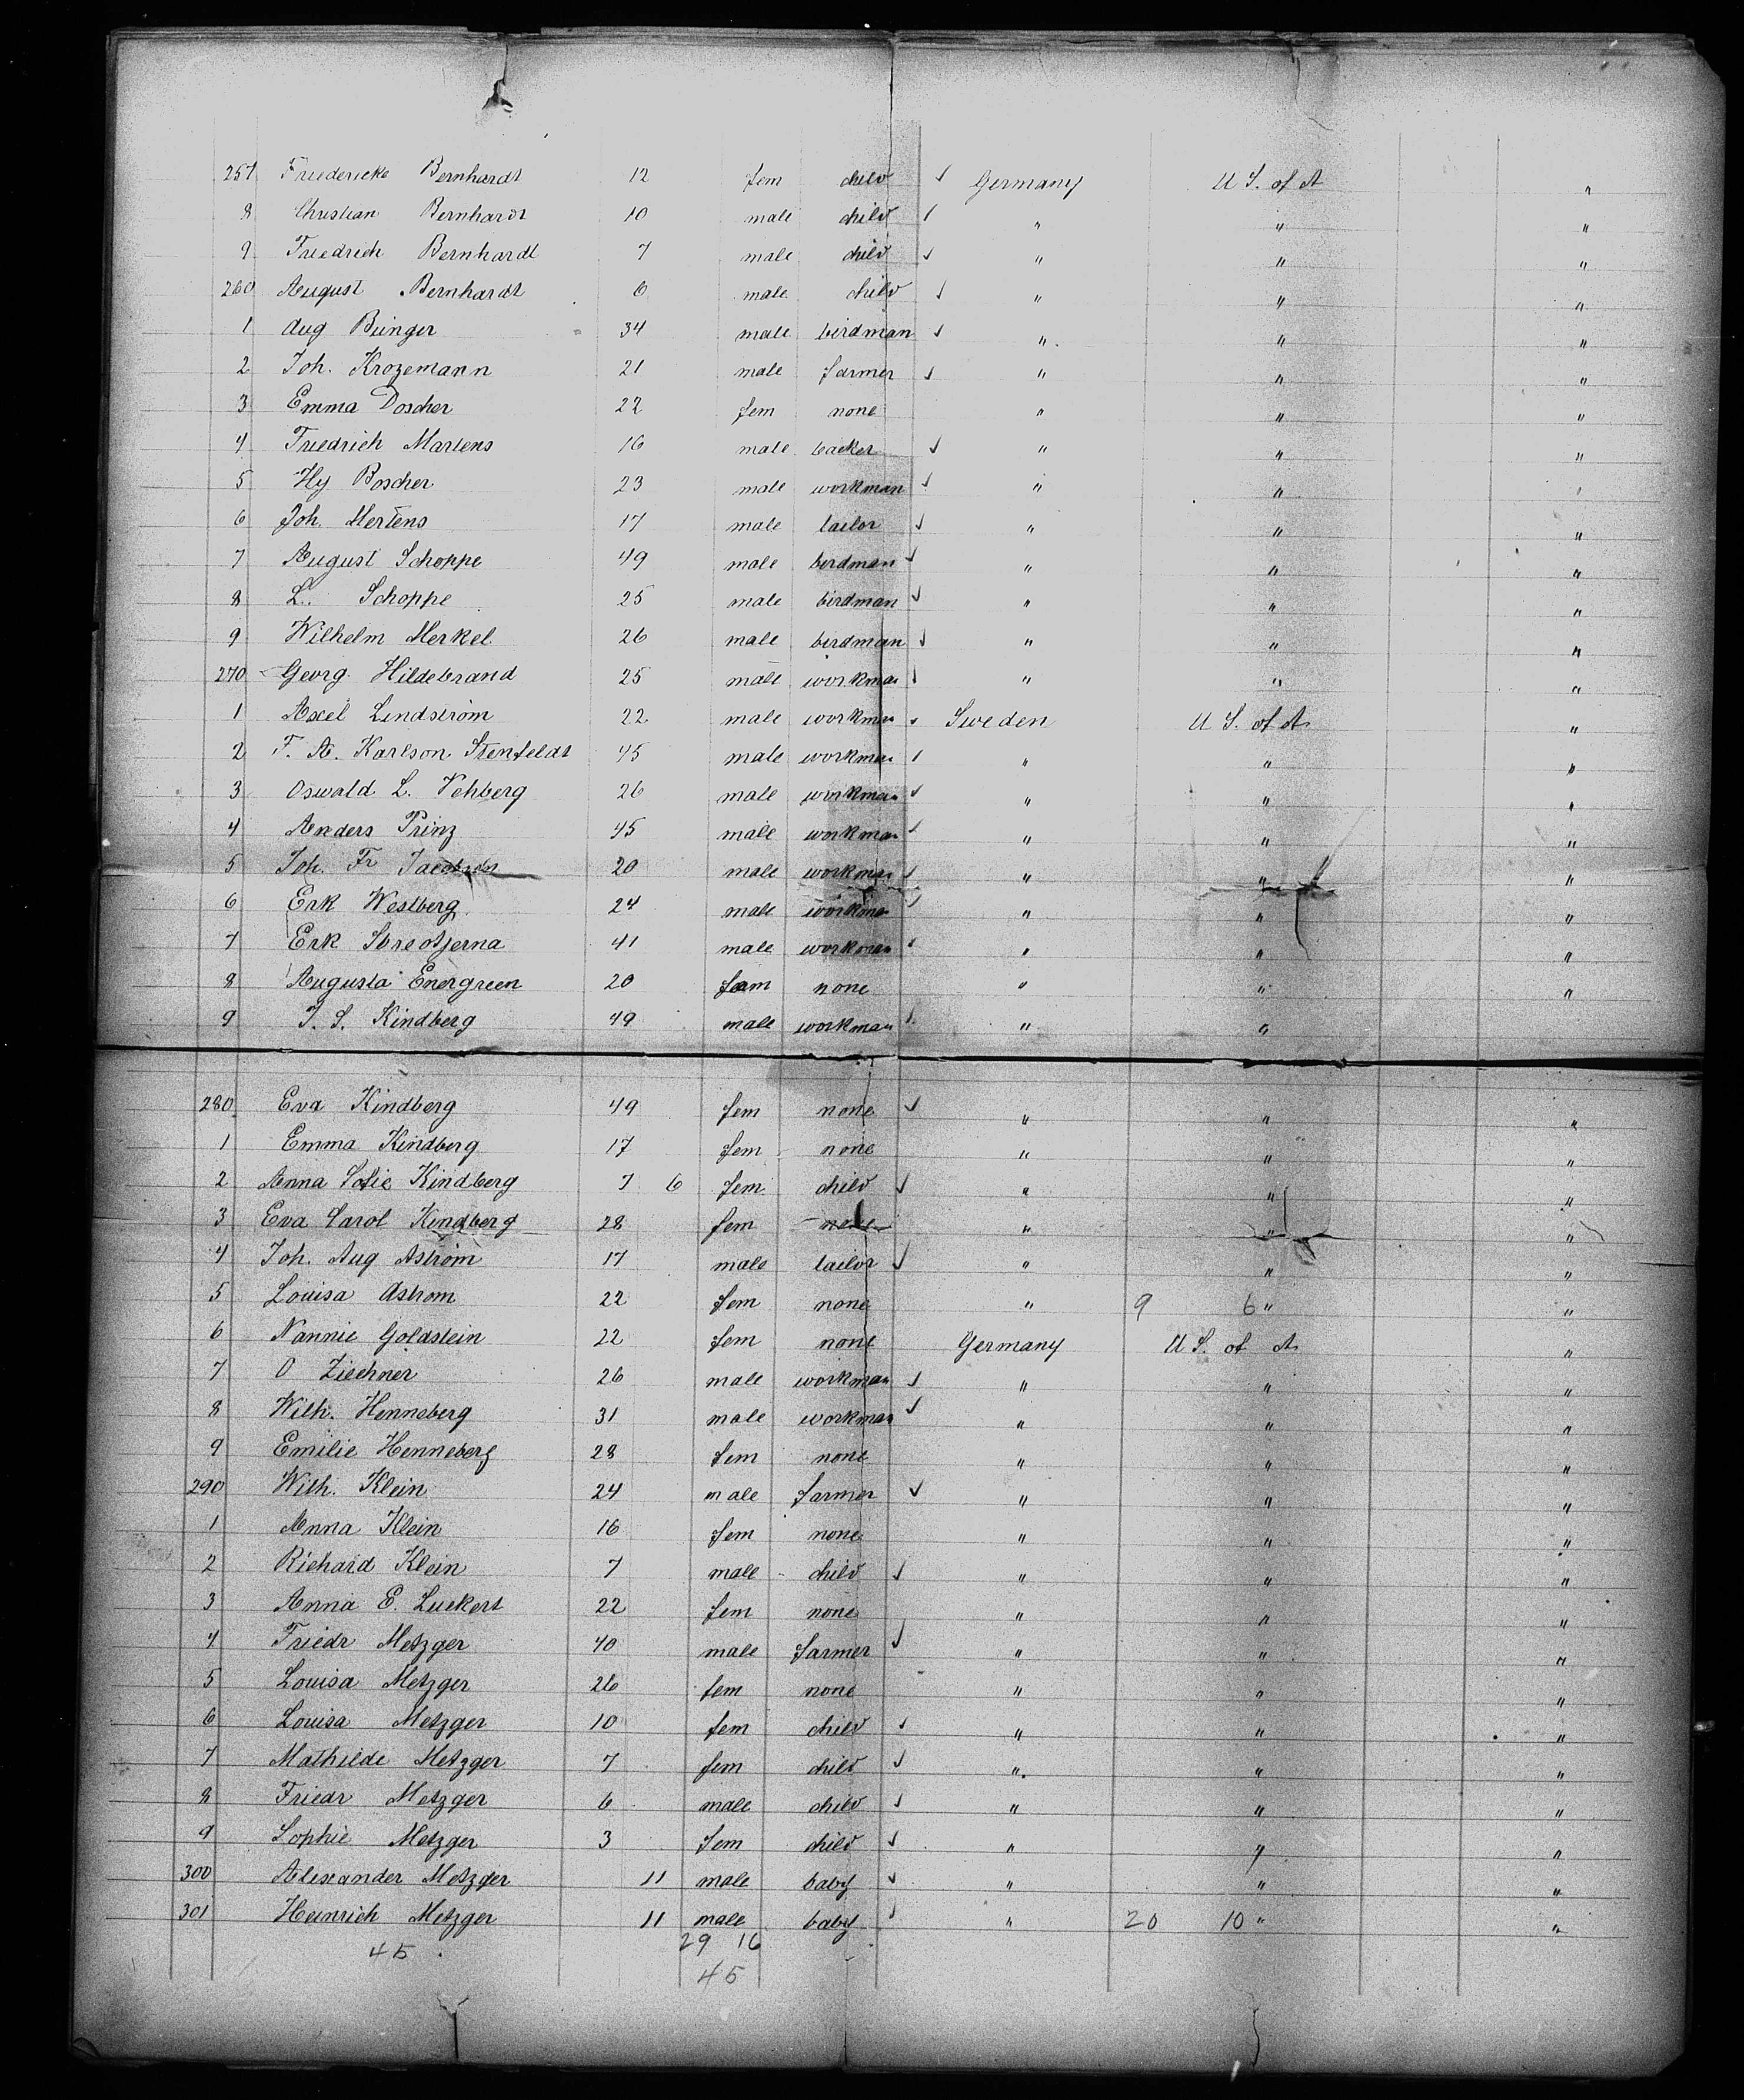 257 Friedericke Bernhardt 12 fem child ✓ Germany U S. of A "
8 Christian Bernhardt 10 male child ✓ " " "
9 Friedrich Bernhardt 7 male child ✓ " " "
260 August Bernhardt 6 male child ✓ " " "
1 Aug Bünger 34 male birdman ✓ " " "
2 Joh. Krozemann 21 male farmer ✓ " " "
3 Emma Doscher 22 fem none " " "
4 Friedrich Martens 16 male backer ✓ " " "
5 Hy Boscher 23 male workman ✓ " " "
6 Joh. Mertens 17 male tailor ✓ " " "
7 August Schoppe 49 male birdman ✓ " " "
8 L. Schoppe 25 male birdman ✓ " " "
9 Wilhelm Merkel 26 male birdman ✓ " " "
270 Georg Hildebrand 25 male workman ✓ " " "
1 Axel Lindström 22 male workman ✓ Sweden U S. of A "
2 F. A. Karlson Stenfeldt 45 male workman ✓ " " "
3 Oswald L. Vehberg 26 male workman ✓ " " "
4 Anders Prinz 45 male workman ✓ " " "
5 Joh. Fr 20 male workman ✓ " " "
6 Erk Westberg 24 male workman ✓ " " "
7 Erk 41 male workman ✓ " " "
8 Augusta Energreen 20 fem none " " "
9 J. S. Kindberg 49 male workman ✓ " " "
280 Eva Kindberg 49 fem none ✓ " " "
1 Emma Kindberg 17 fem none " " "
2 Anna Sofie Kindberg 7 6 fem child ✓ " " "
3 Eva Carol Kindberg 28 fem none " " "
4 Joh. Aug Aström 17 male tailor ✓ " " "
5 Louisa Astrom 22 fem none " 9 6 " "
6 Nannie Goldstein 22 fem none Germany U S. of A "
7 O Ziechner 26 male workman ✓ " " "
8 Wilh. Henneberg 31 male workman ✓ " " "
9 Emilie Henneberg 28 fem none " " "
290 Wilh. Klein 24 male farmer ✓ " " "
1 Anna Klein 16 fem none " " "
2 Richard Klein 7 male child ✓ " " "
3 Anna E. Luckert 22 fem none " " "
4 Friedr Metzger 40 male farmer ✓ " " "
5 Louisa Metzger 26 fem none " " "
6 Louisa Metzger 10 fem child ✓ " " "
7 Mathilde Metzger 7 fem child ✓ " " "
8 Friedr Metzger 6 male child ✓ " " "
9 Sophie Metzger 3 fem child ✓ " " "
300 Alexander Metzger 11 male baby ✓ " " "
301 Heinrich Metzger 11 male baby ✓ " 20 10 " "
45 29 16
45